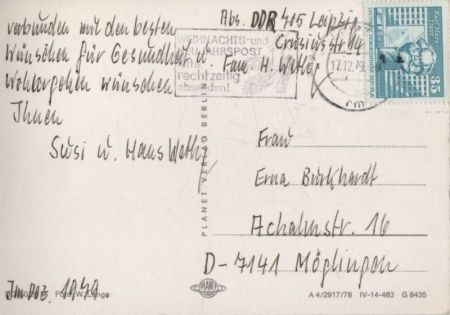 Abs. DDR 705 Leipzig
Crusiusstr.
Fam. H. Wetg
verbunden mit den besten
Wünschen für Gesundheit u.
Wohlergehen wünschen
Ihnen
Susi u. Hans
Im Dez. 1979
WEIHNACHTS- und
NEUJAHRSPOST
rechtzeitig
absenden!
17.12.79
35
PLANET VERLAG BERLIN
Frau
Erna Burkhardt
Achalmstr. 16
D-7141 Möglingen
PLANET
A 4/2917/76 IV-14-483 G 6435